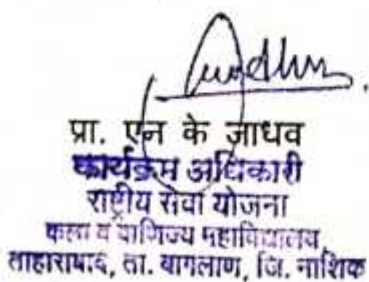 प्रा. एन के जाधव
कार्यक्रम अधिकारी
राष्ट्रीय सेवा योजना
कला व वाणिज्य महाविद्यालय
ताहाराबाद, ता. बागलाण, जि. नाशिक